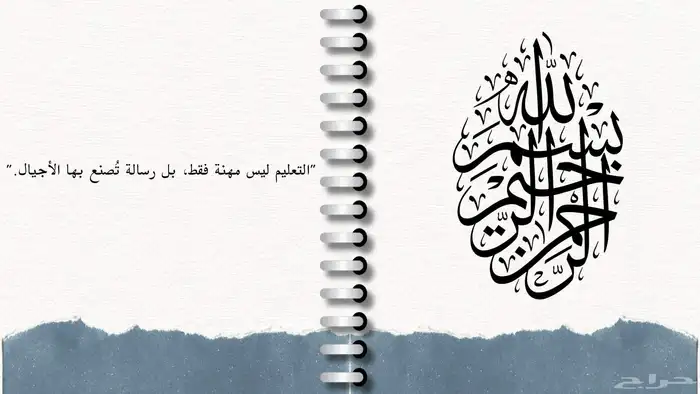 بسم الله الرحمن الرحيم
"التعليم ليس مهنة فقط، بل رسالة تُصنع بها الأجيال."
حراج